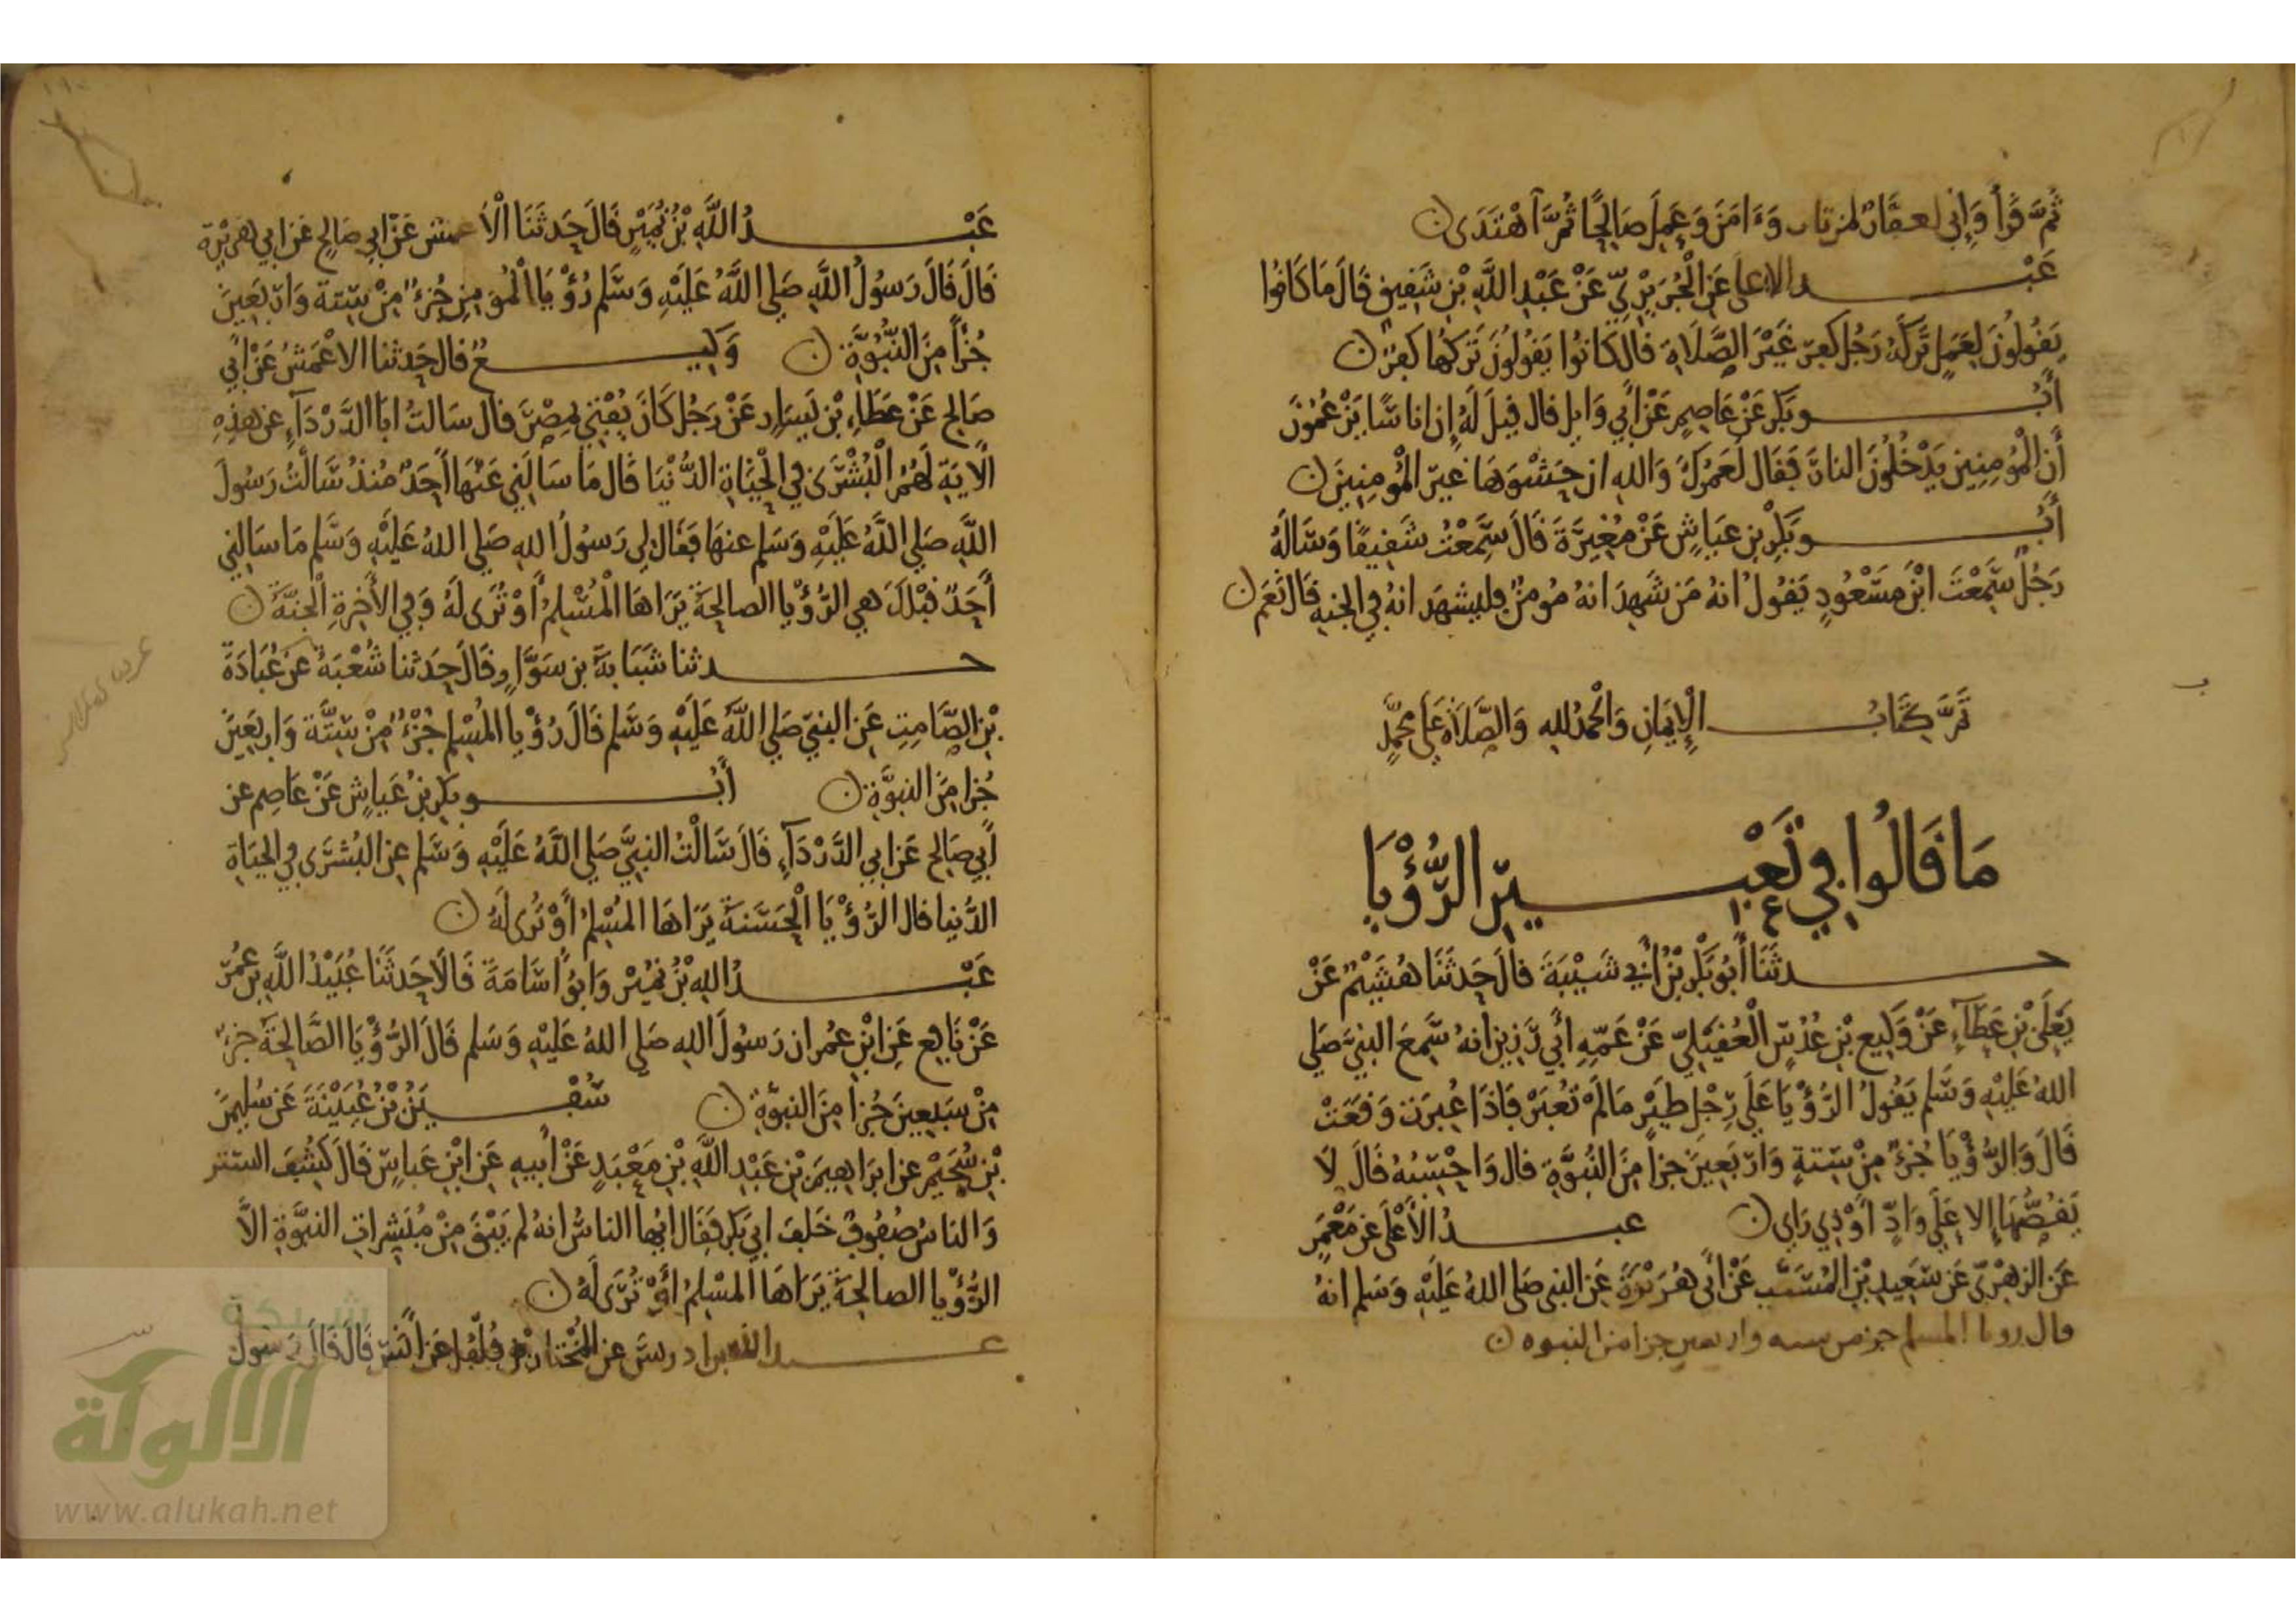 ثُمَّ قَرَأَ وَإِنِّي لغفار لمن تاب وَءَامَنَ وَعَمِلَ صَالِحًا ثُمَّ اهْتَدَى
عَبْد الاعلى عَنِ الْجُرَيْرِيِّ عَنْ عَبْدِ اللَّهِ بْنِ شَقِيقٍ قَالَ مَا كَانُوا
يَقُولُونَ لِعَمَلٍ تَرَكَهُ رَجُل كفر غَيْرَ الصَّلَاةِ قال كَانُوا يَقُولُونَ تَرْكُهَا كفر
أَبُو بَكْرٍ عَنْ عَاصِمٍ عَنْ أَبِي وَايِل قال قِيلَ لَهُ إِن اناسًا يَزْعُمُونَ
أَن الْمُؤمِنِين يَدْخُلُونَ النارَ فَقَال لَعَمْرُكَ وَاللهِ ان حَشْوَهَا غيرَ الْمُؤمِنِينَ
أَبُو بَكْرِ بْنِ عَيَاشٍ عَنْ مُغِيرَةَ قَالَ سَمِعْتُ شَقِيقًا وَسَالَهُ
رَجُلٌ سَمِعْتَ ابْنَ مَسْعُودٍ يَقُولُ انهُ مَن شَهِدَ انهُ مُومنٌ فليشهَد انهُ في الجنهِ قَالَ نَعَم
تَمَّ كِتَابُ الْإِيمَانِ وَالْحَمدُ للهِ وَالصَّلَاة عَلَى مُحَمَّدٍ
مَا قَالُوا فِي تَعْبِيرِ الرُّؤْيَا
حدثَنَا أَبُو بَكْرِ بْنُ أَبِي شَيْبَةَ قالَ حَدثَنَا هُشَيْمٌ عَنْ
يَعْلَى بْنِ عَطَآءٍ عَنْ وَكِيعِ بْنِ عُدُسٍ الْعُقَيْلِيِّ عَنْ عَمِّهِ أَبِي رَزِينٍ انهُ سَمِعَ النبيَّ صَلى
اللهُ عَلَيْهِ وَسَلم يَقُولُ الرُّؤْيَا عَلَى رِجْلِ طَيْرٍ مَا لَمْ تُعْبَرْ فَاذَا عُبِرَت وَقَعَتْ
قَالَ وَالرُّؤْيَا جُزْءٌ مِنْ سِتةٍ وَارْبَعِينَ جزأ مِنَ النُّبُوَّةِ قال وَاحْسِبُهُ قَالَ لَا
يَقُصُّهَا إِلا عَلَى وَادٍّ أَوْ ذِي رَاي عبدُ الأَعْلَى عَن مَعْمَرٍ
عَن الزهْرِيّ عَن سَعِيدِ بْنِ المُسَيَّبِ عَنْ أَبِي هُرَيْرَةَ عَنِ النبى صَلى اللهُ عَلَيْهِ وَسَلم انهُ
قال رويا المسلم جز من سته واربعين جزا من النبوه
عَبْدُ اللَّهِ بْنُ نُمَيْرٍ قَالَ حَدثَنَا الْأَعمش عَنْ ابي صَالِحٍ عَن ابي هُرَيْرَة
قَالَ قَالَ رَسُولُ اللَّهِ صَلى اللَّهُ عَلَيْهِ وَسَلم رُؤْيَا الْمُؤمِنِ جُزْءٌ مِنْ سِتةٍ وَارْبَعِينَ
جُزْأً مِنَ النُّبُوَّةِ وَكِيعٌ قال حَدثنا الاعْمَشُ عَنْ أَبِي
صَالِحٍ عَنْ عَطَاءِ بْنِ يَسَارٍ عَنْ رَجُلٍ كَانَ يُفْتِي بِمِصْرَ قال سَالتُ ابَا الدَّرْدَآءِ عن هذِهِ
الْايَةِ لَهُمُ الْبُشْرَى فِي الْحَيَاةِ الدُّنْيَا قَال مَا سَالَنِي عَنْهَا أَحَدٌ مُنذُ سَالْتُ رَسُولَ
اللَّهِ صَلى اللَّهُ عَلَيْهِ وَسَلم عنهَا فَقَالَ لِي رَسُولُ اللهِ صَلى اللهُ عَلَيْهِ وَسَلم مَا سَالنِي
أَحَدٌ قبْلَكَ هي الرُّؤْيا الصالِحَة يَرَاهَا الْمُسْلِمُ أَوْ تُرَى لَهُ وَفِي الأَخِرَةِ الْجَنَّةُ
حدثنا شَبَابَةُ بن سَوَّارٍ قَالَ حَدثنا شُعْبَةُ عَن عُبَادَةَ
بْنِ الصَّامِتِ عَن النبيّ صَلى اللَّهُ عَلَيْهِ وَسَلم قَالَ رُؤْيا المُسْلِم جُزْءٌ مِنْ سِتَّة وَارْبَعِينَ
جُزا مِنَ النبوَّةِ أَبُو بَكرِ بنُ عَيَاشٍ عَنْ عَاصِم عن
أَبِي صَالِح عَن ابِي الدَّرْدَآءِ قَالَ سَالْتُ النبيَّ صَلى اللَّهُ عَلَيْهِ وَسَلم عن البُشرَى في الحيَاةِ
الدُّنيا قال الرُّؤْيَا الْحَسَنَةُ يَرَاهَا المُسْلِمُ أَوْ تُرَى لَهُ
عَبْدُ اللهِ بْنُ نمَيْر وَابُو أُسَامَةَ قَالَا حَدثَنَا عُبَيْدُ اللَّهِ بن عُمَرَ
عَنْ نَافِع عَنِ ابْنِ عُمَر ان رَسُولَ اللهِ صَلى اللهُ عَلَيْهِ وَسَلم قَالَ الرُّؤْيَا الصَّالِحَة جزءٌ
مِنْ سَبعِينَ جُزا مِنَ النبوَّةِ سُفْيَنُ بْنُ عُيَيْنَةَ عَن سُلَيمَنَ
بْنِ سُحَيْمٍ عن ابرَاهِيمَ بْنِ عَبْدِ اللَّهِ بْنِ مَعْبَدٍ عَنْ أَبيهِ عَنِ ابْنِ عَباسٍ قَال كَشَفَ الستر
وَالناسُ صُفُوفٌ خَلفَ ابي بَكرٍ فَقَال ايها الناسُ انهُ لم يَبْقَ مِنْ مُبَشِراتِ النبوَّةِ الاَّ
الرُّؤْيا الصالِحَةُ يَرَاهَا المُسْلِمُ أَوْ تُرَى لَهُ
عبد الله بن ادريسَ عن المُخْتارِ بْنِ فُلْفُل عَن أَنَسٍ قَالَ قَالَ رَسُولُ
شبكة
الألوكة
www.alukah.net